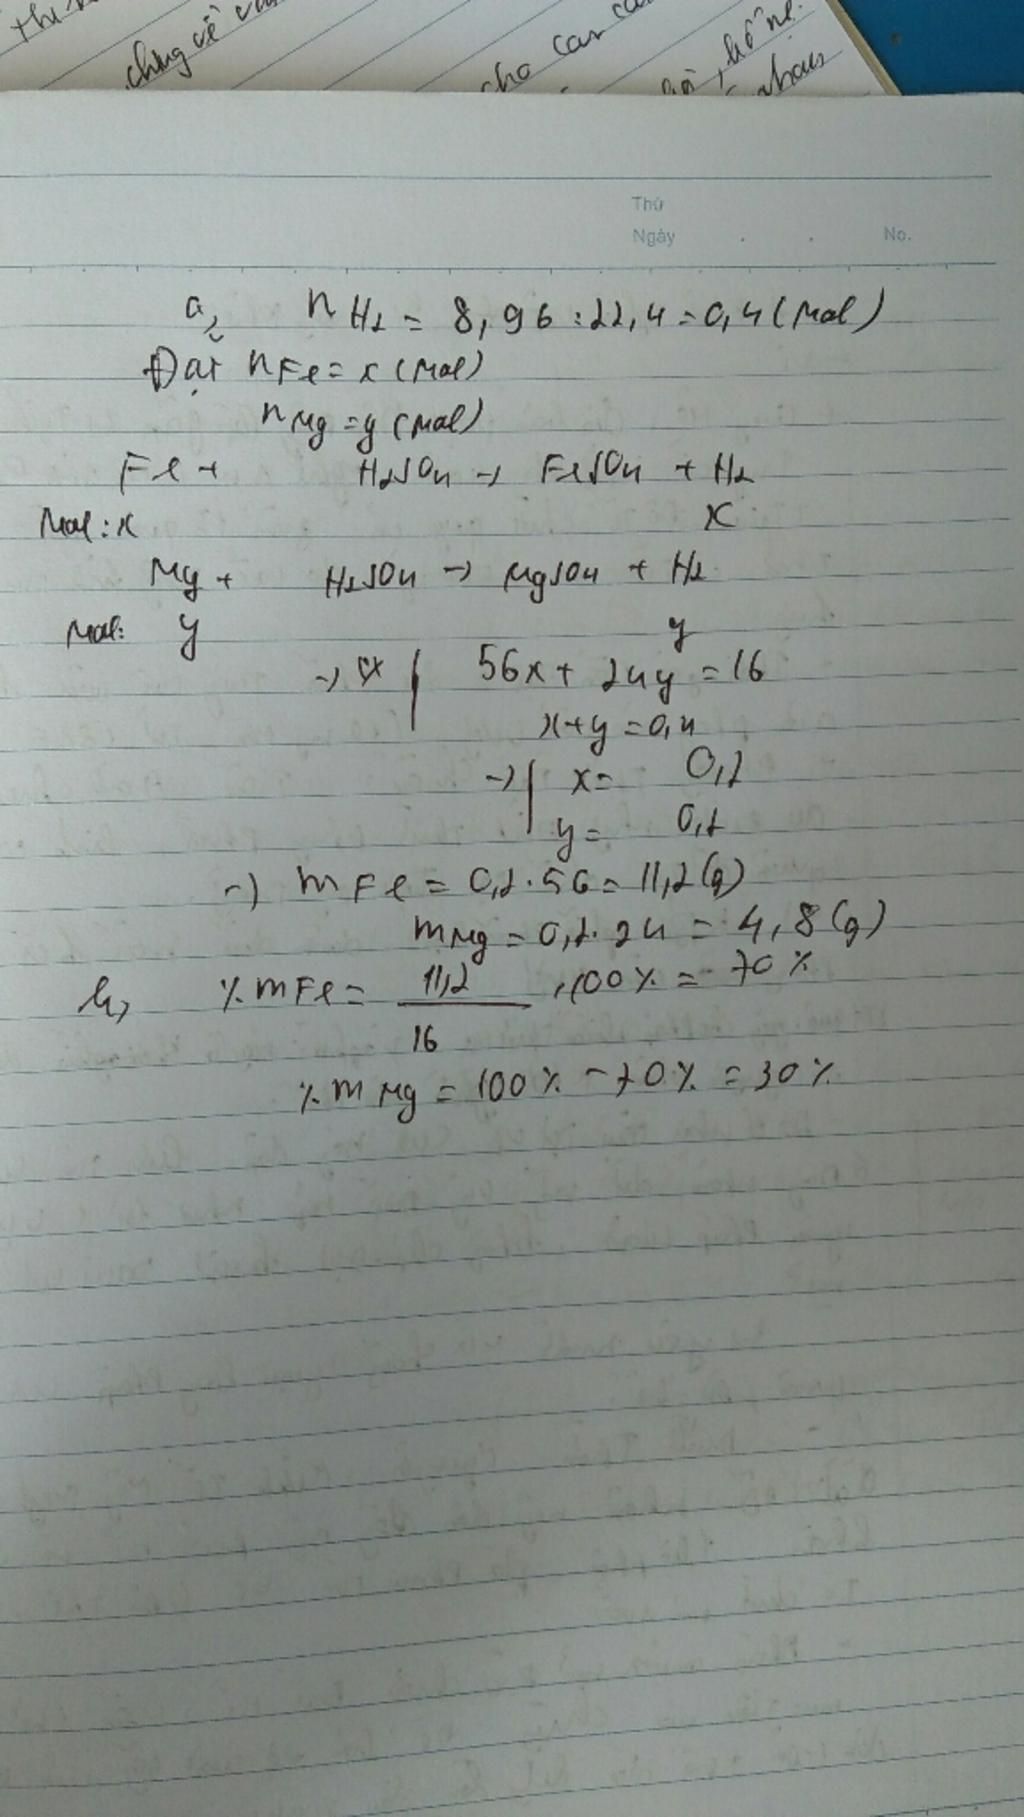 chúng về
cho
Thứ
Ngày . . No.
a, nH2 = 8,96 : 22,4 = 0,4 (mol)
Đặt nFe = x (mol)
nMg = y (mol)
Fe + H2SO4 → FeSO4 + H2
Mol: x x
Mg + H2SO4 → MgSO4 + H2
Mol: y y
→ 56x + 24y = 16
x + y = 0,4
→ x = 0,2
y = 0,2
→ mFe = 0,2 . 56 = 11,2 (g)
mMg = 0,2 . 24 = 4,8 (g)
b, %mFe = 11,2 / 16 . 100% = 70%
%mMg = 100% - 70% = 30%